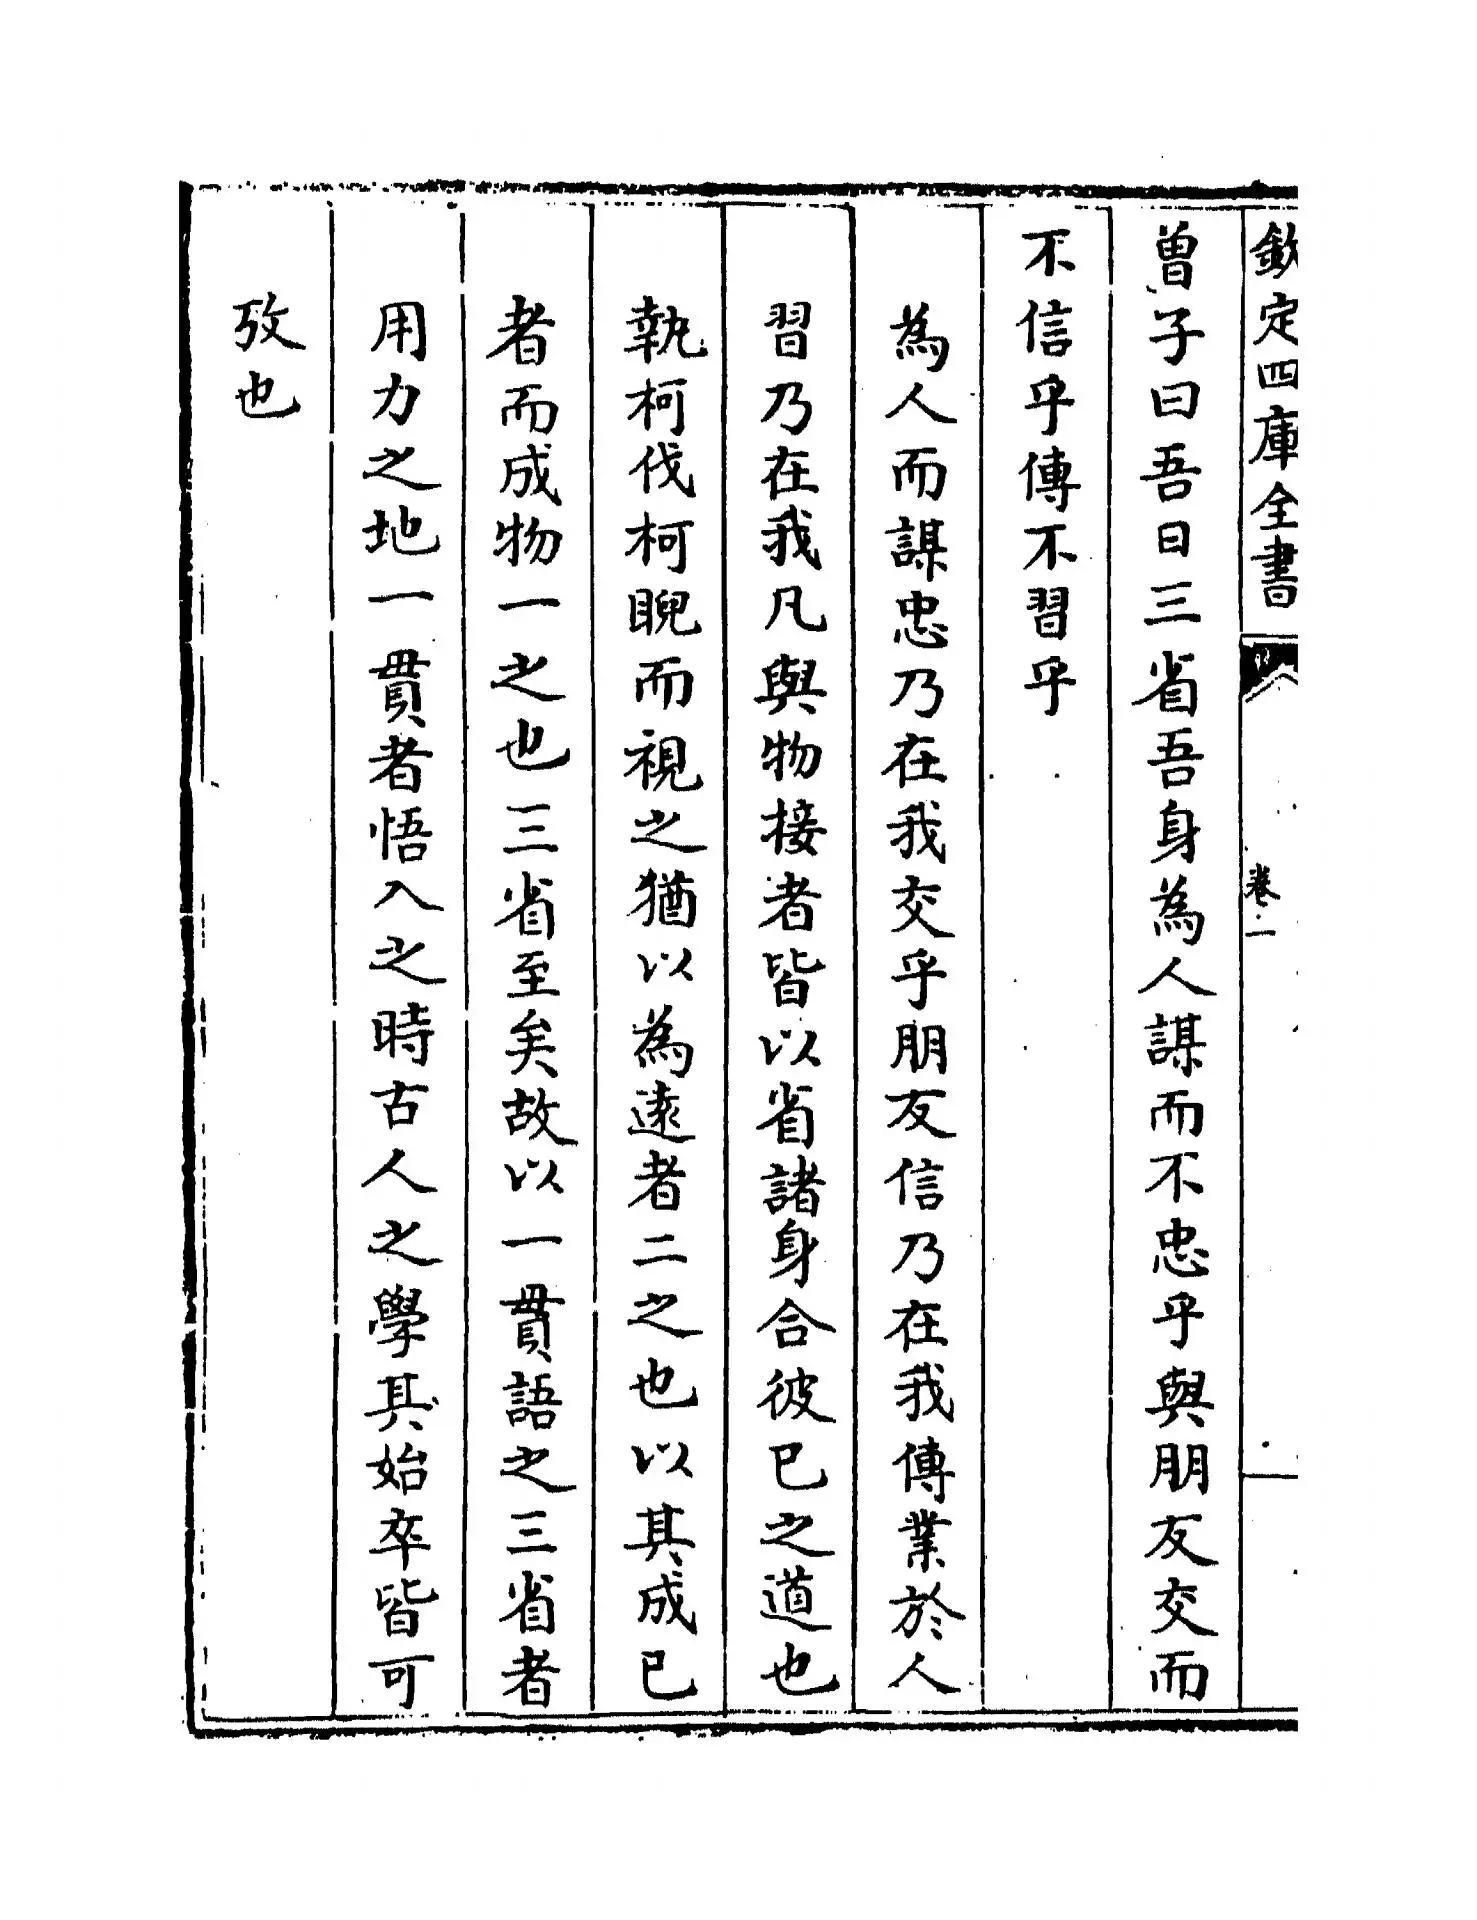 欽定四庫全書
卷一
曾子曰吾日三省吾身為人謀而不忠乎與朋友交而
不信乎傳不習乎
為人而謀忠乃在我交乎朋友信乃在我傳業於人
習乃在我凡與物接者皆以省諸身合彼已之道也
執柯伐柯睨而視之猶以為逺者二之也以其成已
者而成物一之也三省至矣故以一貫語之三省者
用力之地一貫者悟入之時古人之學其始卒皆可
攷也